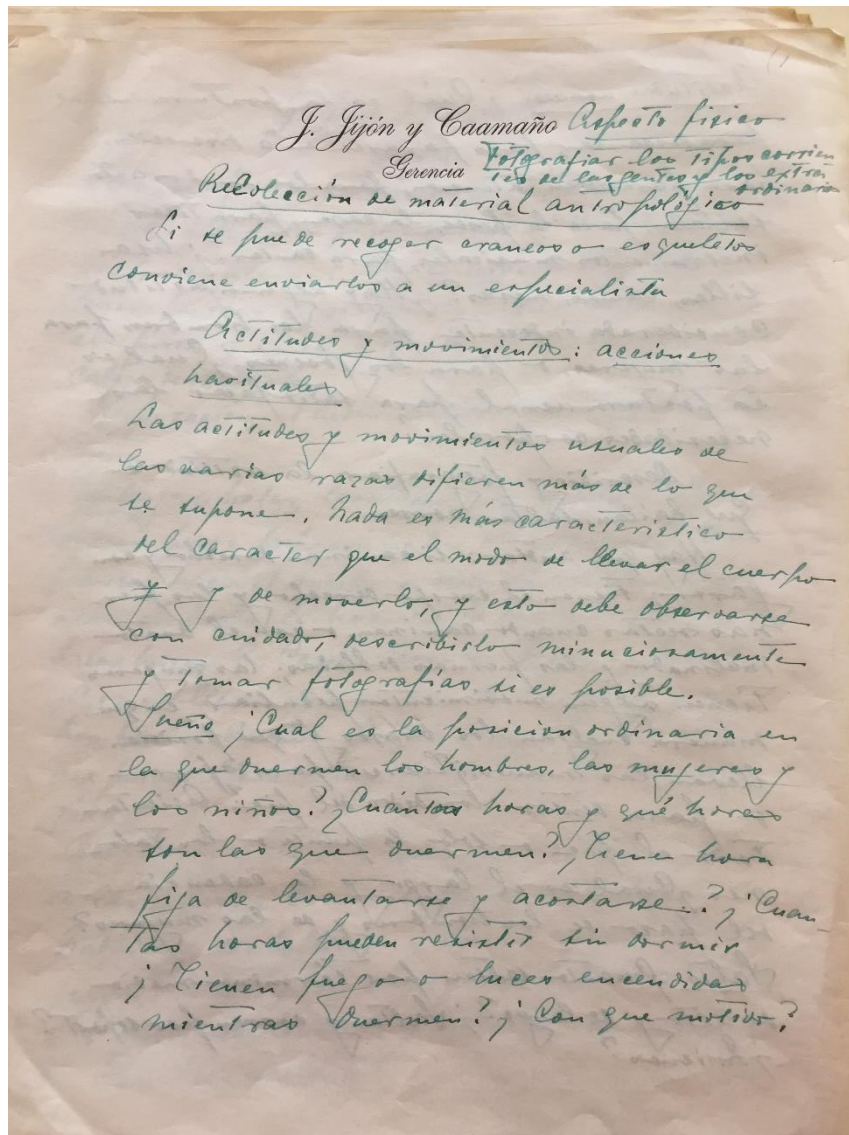 J. Jijón y Caamaño
Gerencia
Aspecto fisico
Fotografiar los tipos corrien
tes de las gentes y los extra
ordinario
Recolección de material antropológico
Si se puede recoger craneos o esqueletos
conviene enviarlos a un especialista
Actitudes y movimientos: acciones
havituales
Las actitudes y movimientos usuales de
las varias razas difieren más de lo que
se supone. Nada es más caracteristico
del caracter que el modo de llevar el cuerpo
y de moverlo, y esto debe observarse
con cuidado, describirlo minuciosamente
y tomar fotografías si es posible.
Sueño ¿Cual es la posicion ordinaria en
la que duermen los hombres, las mujeres y
los niños? ¿Cuántas horas y qué horas
son las que duermen? ¿Tiene hora
fija de levantarse y acostarse? ¿Cuan-
tas horas pueden resistir sin dormir
¿Tienen fuego o luces encendidas
mientras duermen? ¿Con que motivo?